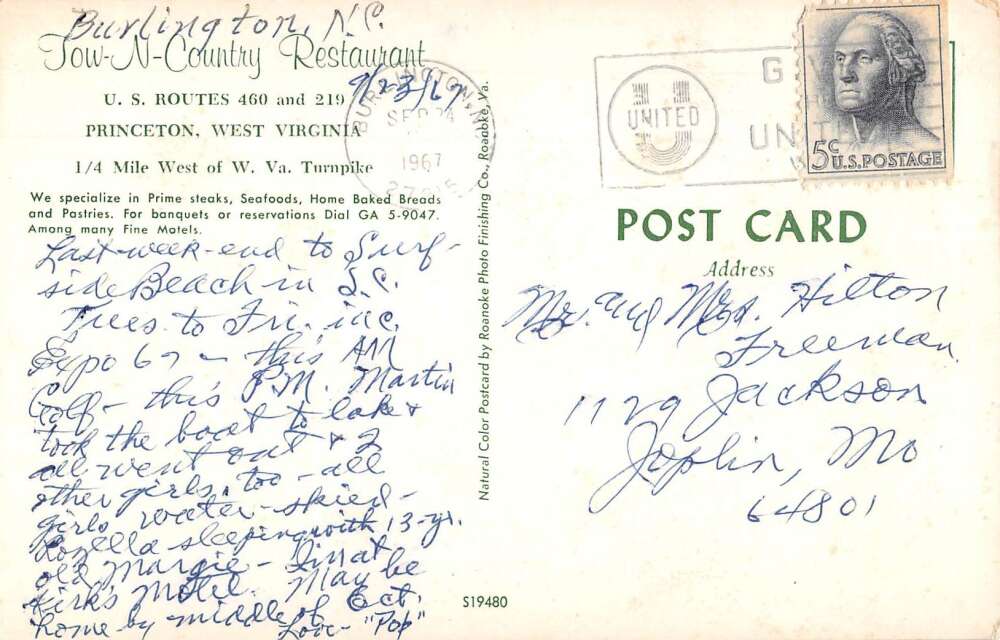 Burlington, N.C.
Tow-N-Country Restaurant
9/23/67
U. S. ROUTES 460 and 219
PRINCETON, WEST VIRGINIA
1/4 Mile West of W. Va. Turnpike
We specialize in Prime steaks, Seafoods, Home Baked Breads
and Pastries. For banquets or reservations Dial GA 5-9047.
Among many Fine Motels.
Last week-end to Surf-
side Beach in S.C.
Tues. to Fri. inc.
Expo 67 - this AM
Golf - this P.M. Martin
took the boat to lake &
all went out & 2
other girls, too - all
girls water-skied -
Rozella sleeping with 13-yr.
old Margie - I'm at
Kirk's Motel. May be
home by middle of Oct.
Love - "Pop"
Natural Color Postcard by Roanoke Photo Finishing Co., Roanoke, Va.
S19480
BURLINGTON, N.C.
SEP 24
1967
UNITED
G
UN
5c U.S. POSTAGE
POST CARD
Address
Mr. and Mrs. Hilton
Freeman
1129 Jackson
Joplin, Mo
64801